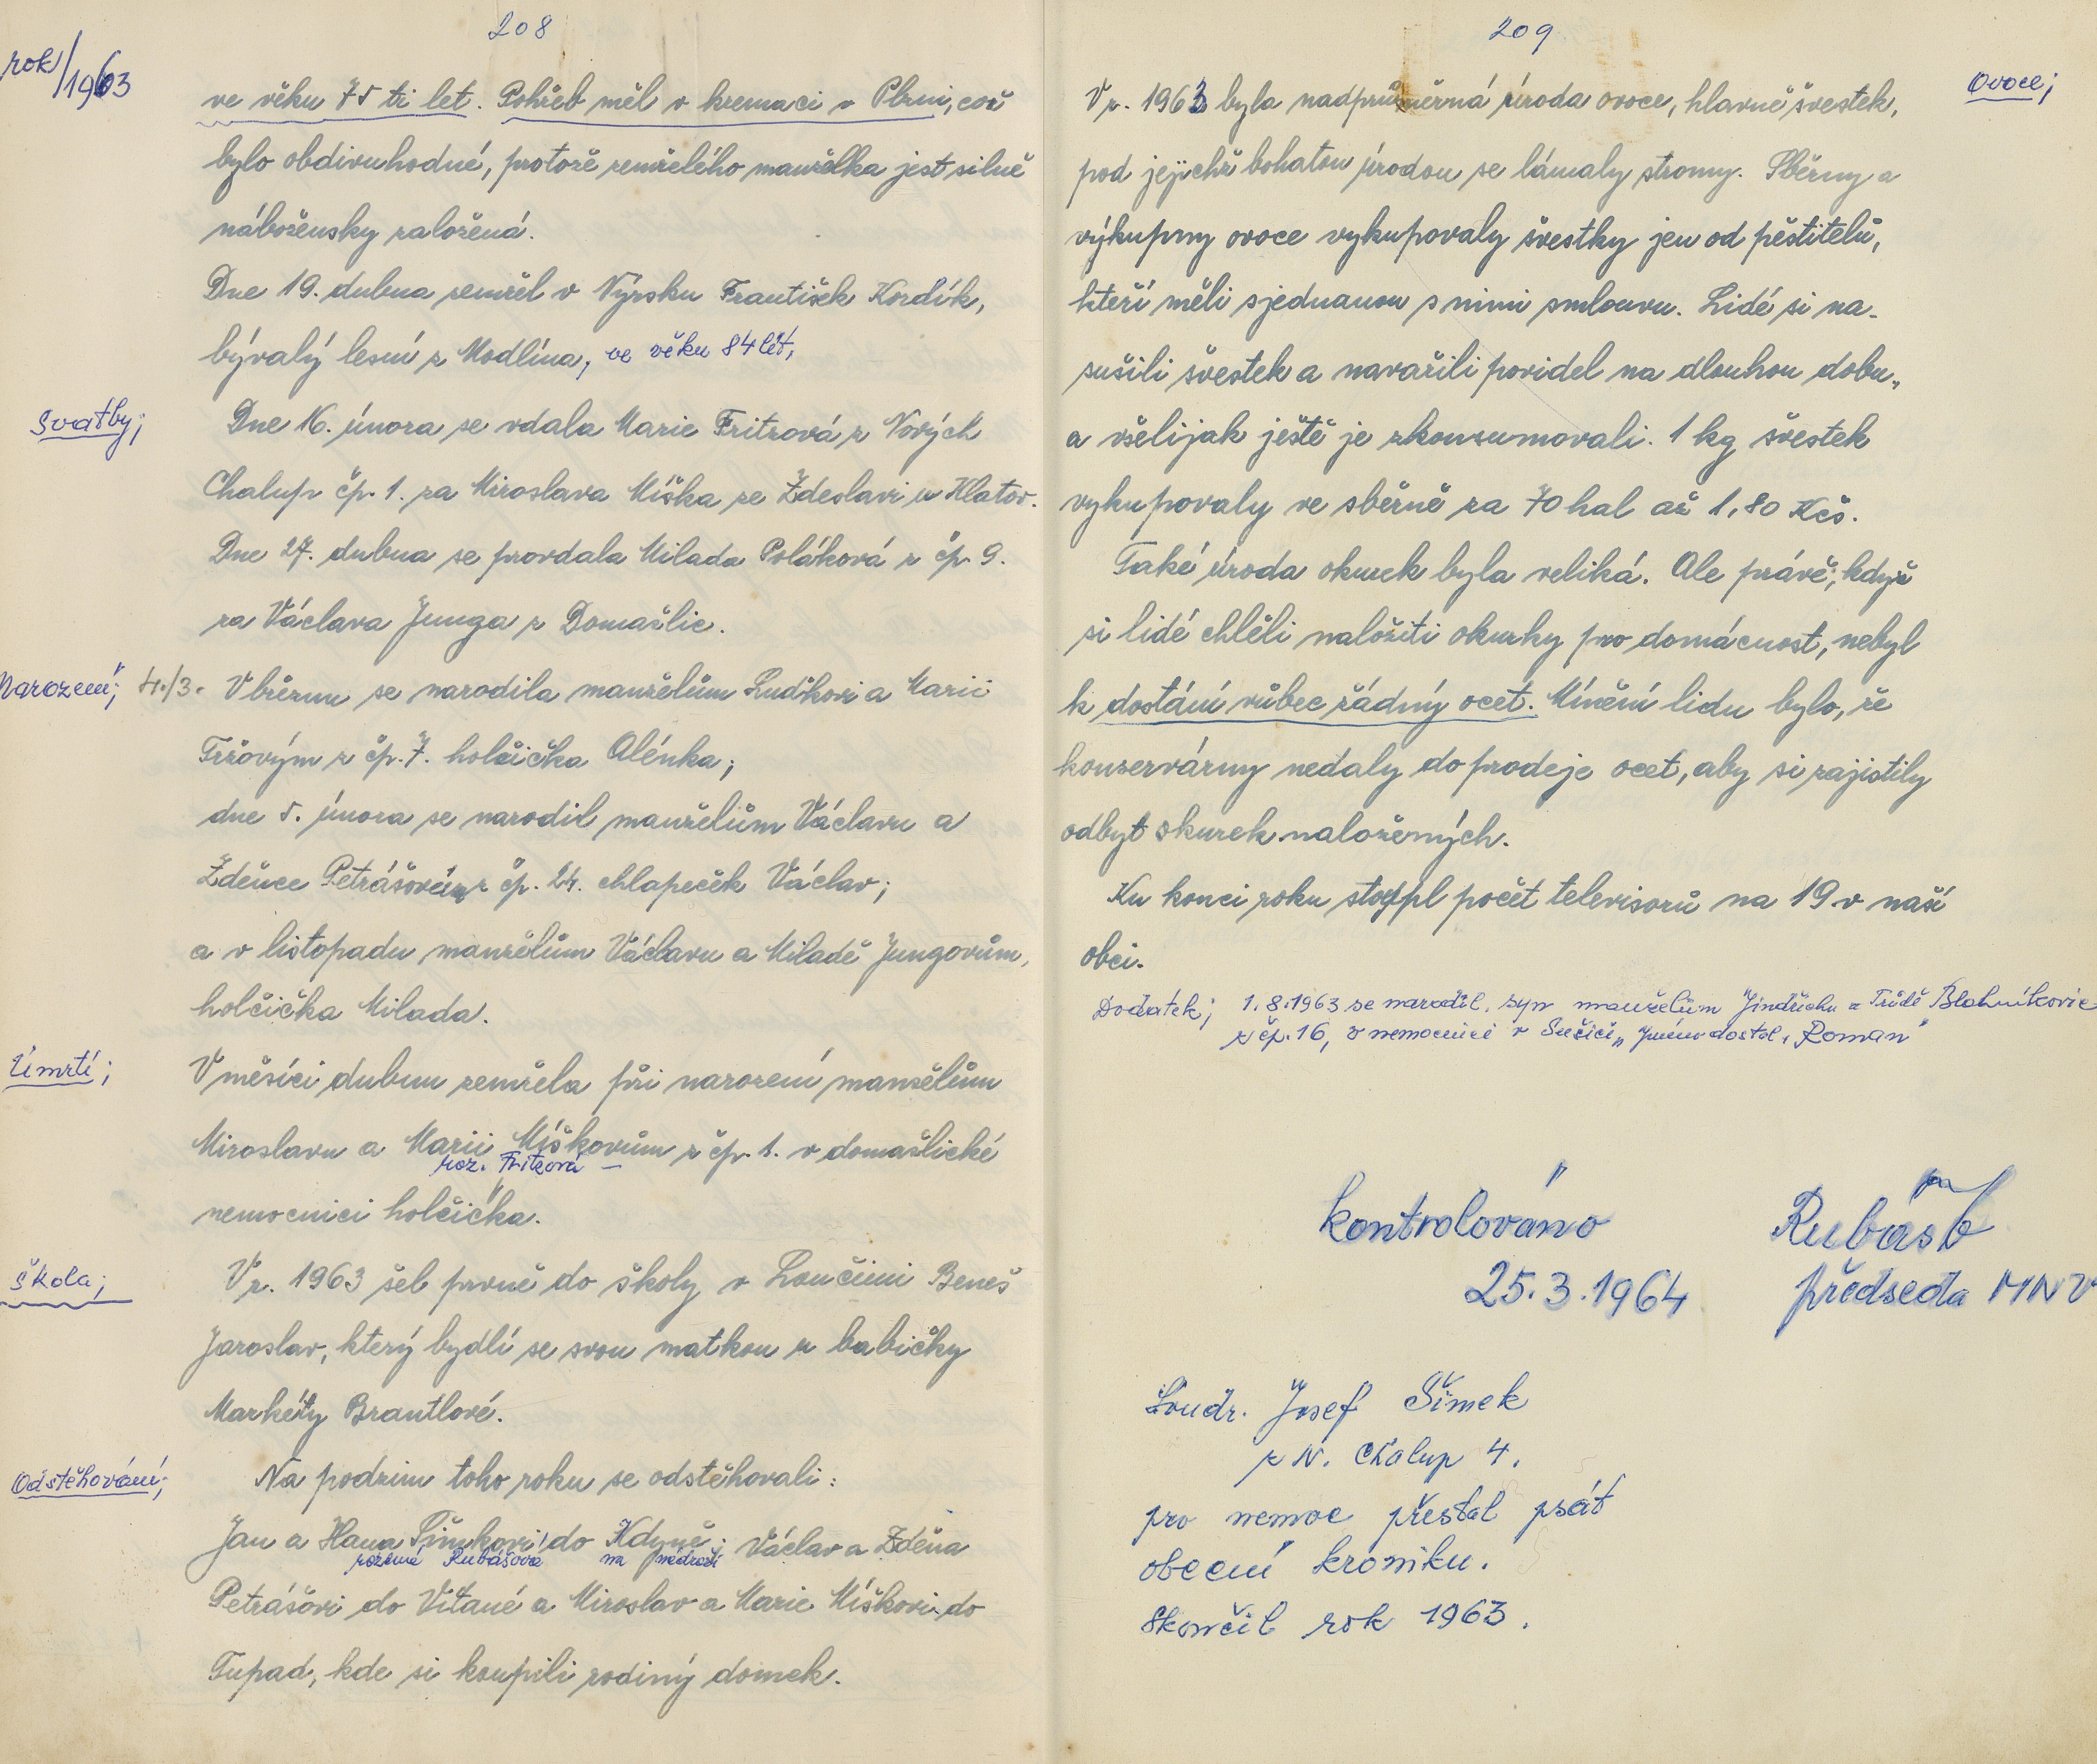 208
rok/1963
ve věku 75 ti let. Pohřeb měl v kremaci v Plzni, což
bylo obdivuhodné, protože zemřelého manželka jest silně
nábožensky založená.
Dne 19. dubna zemřel v Nýrsku František Kordík,
bývalý lesní z Modlína, ve věku 84 lět,
Svatby;
Dne 16. února se vdala Marie Fritzová z Nových
Chalup čp. 1. za Miroslava Míška ze Zdeslavi u Klatov.
Dne 27. dubna se provdala Milada Poláková z čp. 9.
za Václava Junga z Domažlic.
Narození; 4./3. V březnu se narodila manželům Luďkovi a Marii
Tržovým z čp. 7. holčička Alénka;
dne 5. února se narodil manželům Václavu a
Zděnce Petrášovým z čp. 24. chlapeček Václav;
a v listopadu manželům Václavu a Miladě Jungovům,
holčička Milada.
Úmrtí;
V měsíci dubnu zemřela při narození manželům
Miroslavu a Marii Míškovům z čp. 1. v domažlické
roz. Fritzová –
nemocnici holčička.
Škola;
V r. 1963 šel prvně do školy v Loučimi Beneš
Jaroslav, který bydlí se svou matkou u babičky
Markéty Brantlové.
Odstěhování;
Na podzim toho roku se odstěhovali:
Jan a Hana Šimkovi do Kdyně; Václav a Zděna
rozená Rubášová na nádraží
Petrášovi do Vítané a Miroslav a Marie Míškovi do
Tupad, kde si koupili rodiný domek.
209
Ovoce;
V r. 1963 byla nadprůměrná úroda ovoce, hlavně švestek,
pod jejichž bohatou úrodou se lámaly stromy. Sběrny a
výkupny ovoce vykupovaly švestky jen od pěstitelů,
kteří měli sjednanou s nimi smlouvu. Lidé si na-
sušili švestek a navařili povidel na dlouhou dobu,
a všelijak ještě je zkonzumovali. 1 kg švestek
vykupovaly ve sběrně za 70 hal až 1,80 Kčs.
Také úroda okurek byla veliká. Ale právě, když
si lidé chtěli naložiti okurky pro domácnost, nebyl
k dostání vůbec žádný ocet. Mínění lidu bylo, že
konservárny nedaly do prodeje ocet, aby si zajistily
odbyt okurek naložených.
Ku konci roku stoupl počet televisorů na 19 v naší
obci.
Dodatek; 1.8.1963 se narodil, syn manželům Jindřichu a Trůdě Blahníkovic
z čp. 16, v nemocnici v Sušici, Jméno dostal, Roman"
kontrolováno
25.3.1964
Rubáš
předseda MNV
Soudr. Josef Šimek
z N. Chalup 4.
pro nemoc přestal psát
obecní kroniku.
Skončil rok 1963.